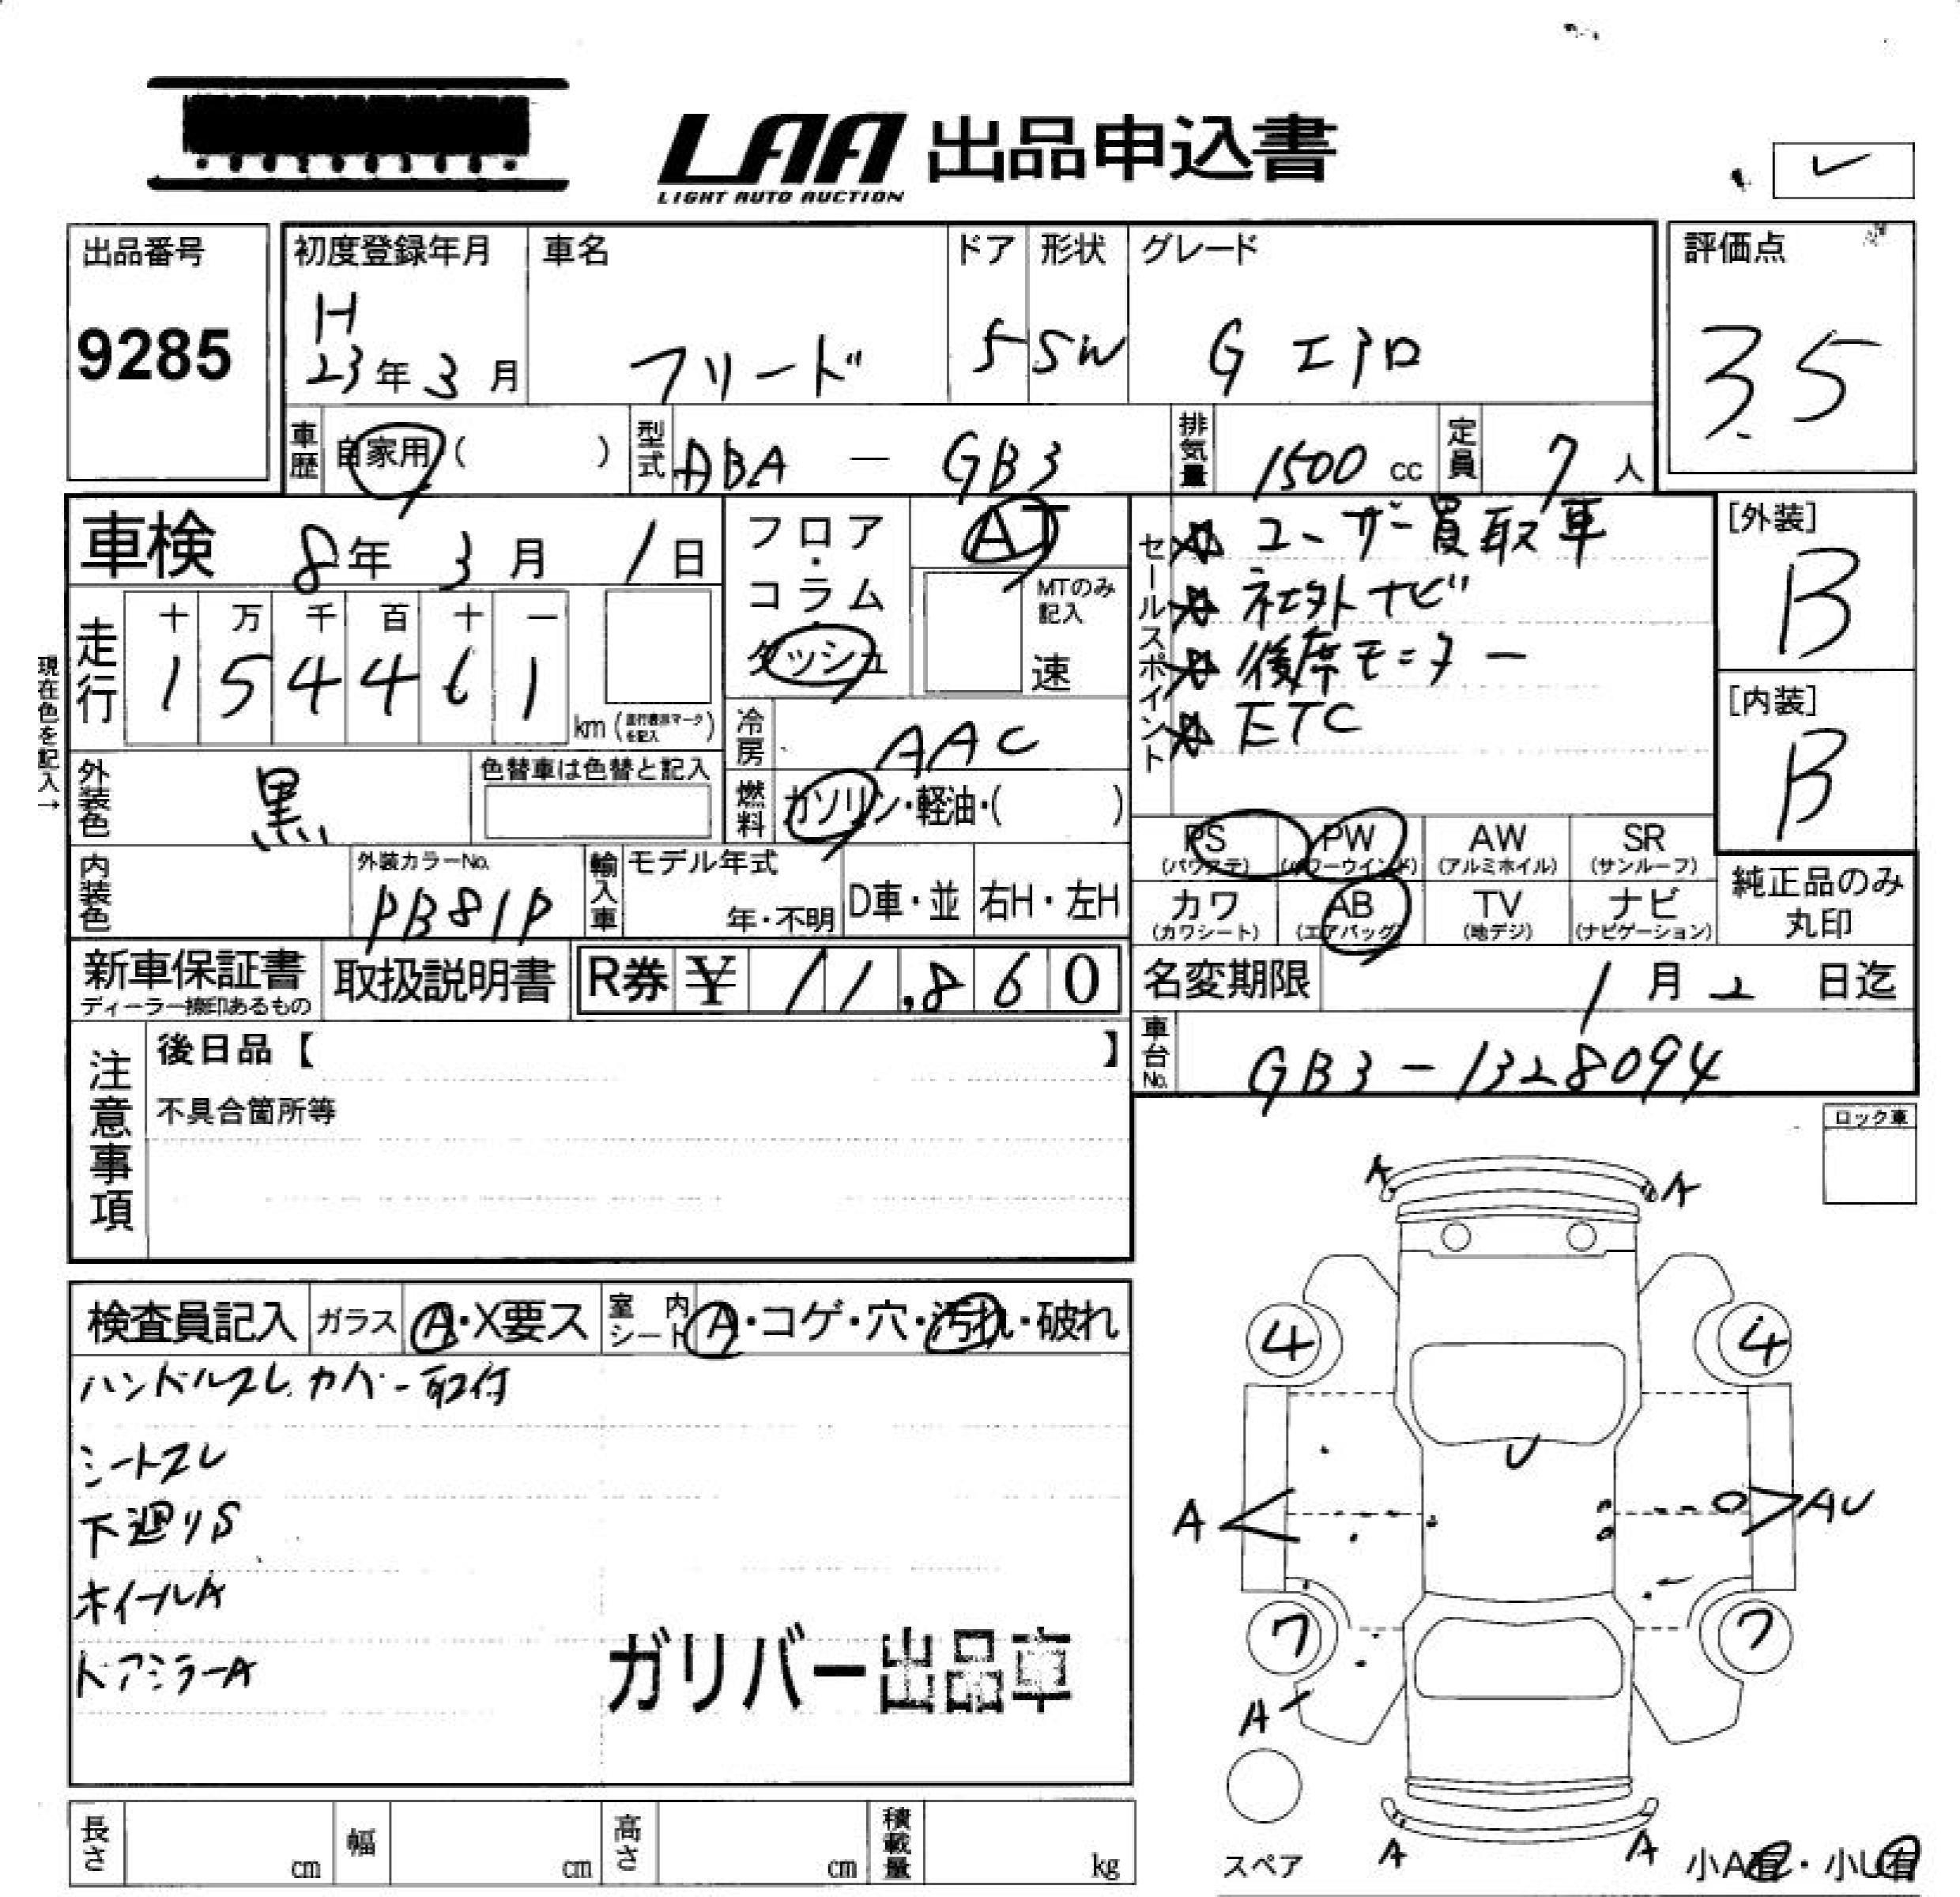 LAA 出品申込書
LIGHT AUTO AUCTION
出品番号
9285
初度登録年月
H
23年3月
車名
フリード
ドア
5
形状
SW
グレード
G エアロ
評価点
3.5
車歴
自家用( )
型式
ABA - GB3
排気量
1500 cc
定員
7人
車検
8年3月1日
フロア・コラム・ダッシュ
AT
MTのみ記入
速
セールスポイント
ユーザー買取車
社外ナビ
後席モニター
ETC
[外装]
B
[内装]
B
現在色を記入→
走行
十 万 千 百 十 一
1 5 4 4 6 1
km(走行表示マークを記入)
冷房
AAC
燃料
ガソリン・軽油・( )
外装色
黒
色替車は色替と記入
PS (パワステ)
PW (パワーウインド)
AW (アルミホイル)
SR (サンルーフ)
カワ (カワシート)
AB (エアバッグ)
TV (地デジ)
ナビ (ナビゲーション)
純正品のみ丸印
内装色
外装カラーNo.
PB81P
輸入車
モデル年式
年・不明
D車・並
右H・左H
新車保証書
ディーラー捺印あるもの
取扱説明書
R券 ¥ 11,860
名変期限
1月2日迄
車台No.
GB3-1328094
注意事項
後日品【 】
不具合箇所等
ロック車
検査員記入
ガラス
A・X要ス
室内シート
A・コゲ・穴・汚れ・破れ
ハンドルスレ カバー取付
シートスレ
下廻りS
ホイールA
ドアミラーA
ガリバー出品車
A A
4 4
U
A AU
7 7
A
スペア
A A
小A有・小U有
長さ cm
幅 cm
高さ cm
積載量 kg